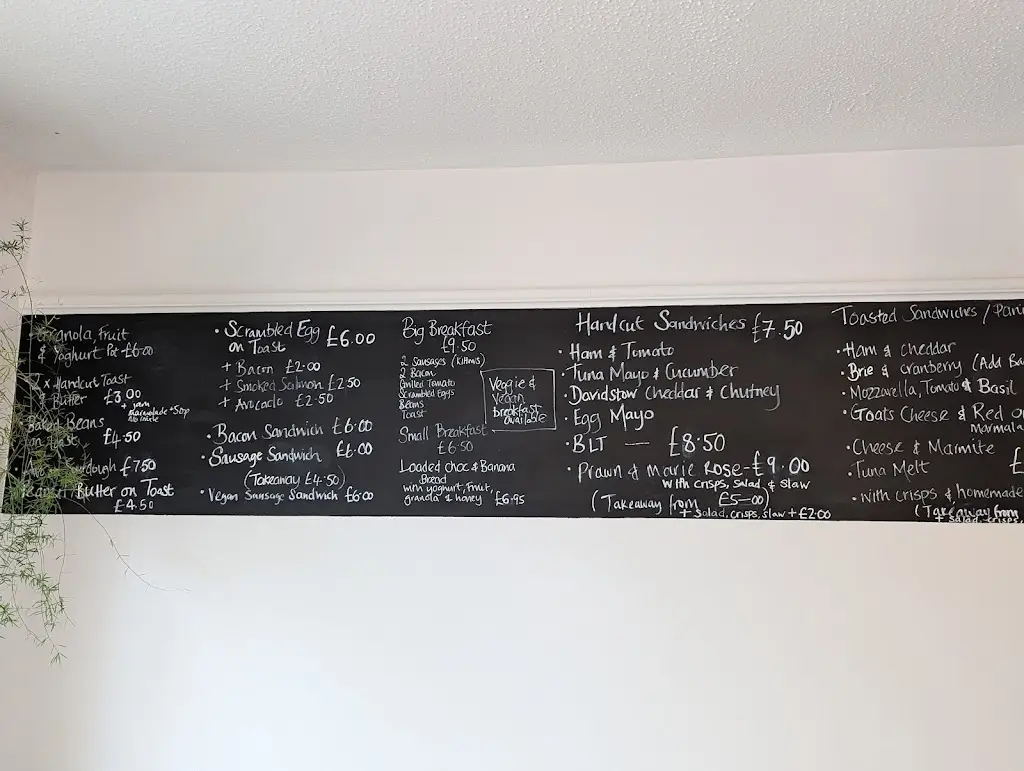 Granola, Fruit
& Yoghurt Pot £6.00
2 x Handcut Toast
& Butter £3.00
+ jam
marmalade + 50p
Baked Beans
on Toast £4.50
£7.50
Peanut Butter on Toast
£4.50
• Scrambled Egg £6.00
on Toast
+ Bacon £2.00
+ Smoked Salmon £2.50
+ Avocado £2.50
• Bacon Sandwich £6.00
• Sausage Sandwich £6.00
(Takeaway £4.50)
• Vegan Sausage Sandwich £6.00
Big Breakfast
£9.50
2 Sausages
2 Bacon
Grilled Tomato
Scrambled Eggs
Beans
Toast
Veggie &
Vegan
breakfast
available
Small Breakfast
£6.50
Loaded choc & Banana
Bread
with yoghurt, Fruit,
granola & honey £6.95
Handcut Sandwiches £7.50
• Ham & Tomato
• Tuna Mayo & Cucumber
• Davidstow Cheddar & Chutney
• Egg Mayo
• BLT — £8.50
• Prawn & Marie Rose - £9.00
with crisps, salad, & slaw
(Takeaway from £5.00)
+ salad, crisps, slaw + £2.00
Toasted Sandwiches /
• Ham & cheddar
• Brie & cranberry (Add
• Mozzarella, Tomato & Basil
• Goats Cheese & Red
• Cheese & Marmite
• Tuna Melt £
• with crisps & homemade
(Takeaway from
+ salad, crisps,